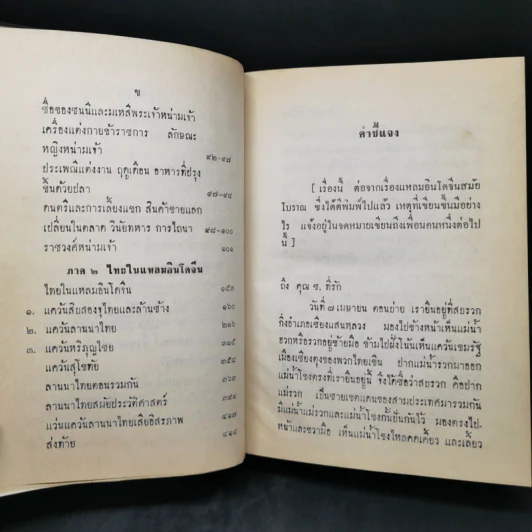 ข
ชื่อของชนนีและมเหสีพระเจ้าหน่านเจ้า
เครื่องแต่งกายข้าราชการ ลักษณะ
หญิงหน่านเจ้า ๙๒-๙๗
ประเพณีแต่งงาน ฤดูเดือน อาหารที่ปรุง
ขึ้นด้วยปลา ๙๗-๙๘
ดนตรีและการเลี้ยงแขก สินค้าขายแลก
เปลี่ยนในตลาด วินัยทหาร การไถนา ๙๘-๑๐๐
ราชวงศ์หน่านเจ้า ๑๐๑
ภาค ๒ ไทยในแหลมอินโดจีน
ไทยในแหลมอินโดจีน ๑๕๓
๑. แคว้นสิบสองจุไทยและล้านช้าง ๑๖๐
๒. แคว้นลานนาไทย ๒๑๖
๓. แคว้นหริภุญไชย ๓๑๕
แคว้นสุโขทัย ๓๕๘
ลานนาไทยตอนรวมกัน ๓๖๓
ลานนาไทยสมัยประวัติศาสตร์ ๓๙๕
แว่นแคว้นลานนาไทยเสียอิสรภาพ ๔๑๗
ส่งท้าย ๔๑๘
คำชี้แจง
[ เรื่องนี้ ต่อจากเรื่องแหลมอินโดจีนสมัย
โบราณ ซึ่งได้ตีพิมพ์ไปแล้ว เหตุที่เขียนขึ้นมีอย่าง
ไร แจ้งอยู่ในจดหมายเขียนถึงเพื่อนคนหนึ่งต่อไป
นี้ ]
ถึง คุณ ซ. ที่รัก
วันที่ ๗ เมษายน ตอนบ่าย เรายืนอยู่ที่สบรวก
กิ่งอำเภอเชียงแสนหลวง มองไปข้างหน้าเห็นแม่น้ำ
รวกหรือรวกอยู่ซ้ายมือ ข้ามไปฝั่งโน้นเห็นแคว้นเขมรัฐ
เมืองเชียงตุงของพวกไทยเขิน ปากแม่น้ำรวกมาออก
แม่น้ำโขงตรงที่เรายืนอยู่นี้ จึงได้ชื่อว่าสบรวก คือปาก
แม่รวก เป็นชายเขตแดนของสามประเทศมารวมกัน
มีแม่น้ำแม่รวกและแม่น้ำโขงกั้นยันกันไว้ มองตรงไป
หน้าและขวามือ เห็นแม่น้ำโขงไหลคดเคี้ยว และเลี้ยว